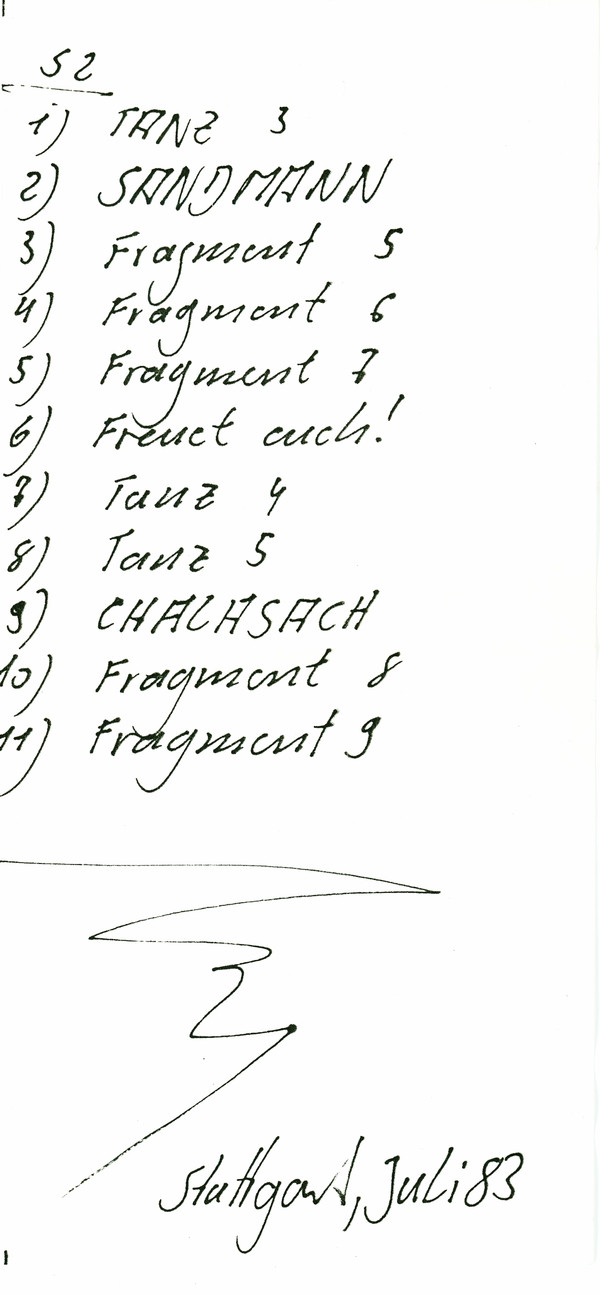 S2
1) TANZ 3
2) SANDMANN
3) Fragment 5
4) Fragment 6
5) Fragment 7
6) Freuet euch!
7) Tanz 4
8) Tanz 5
9) CHACHSACH
10) Fragment 8
11) Fragment 9
Stuttgart, Juli 83